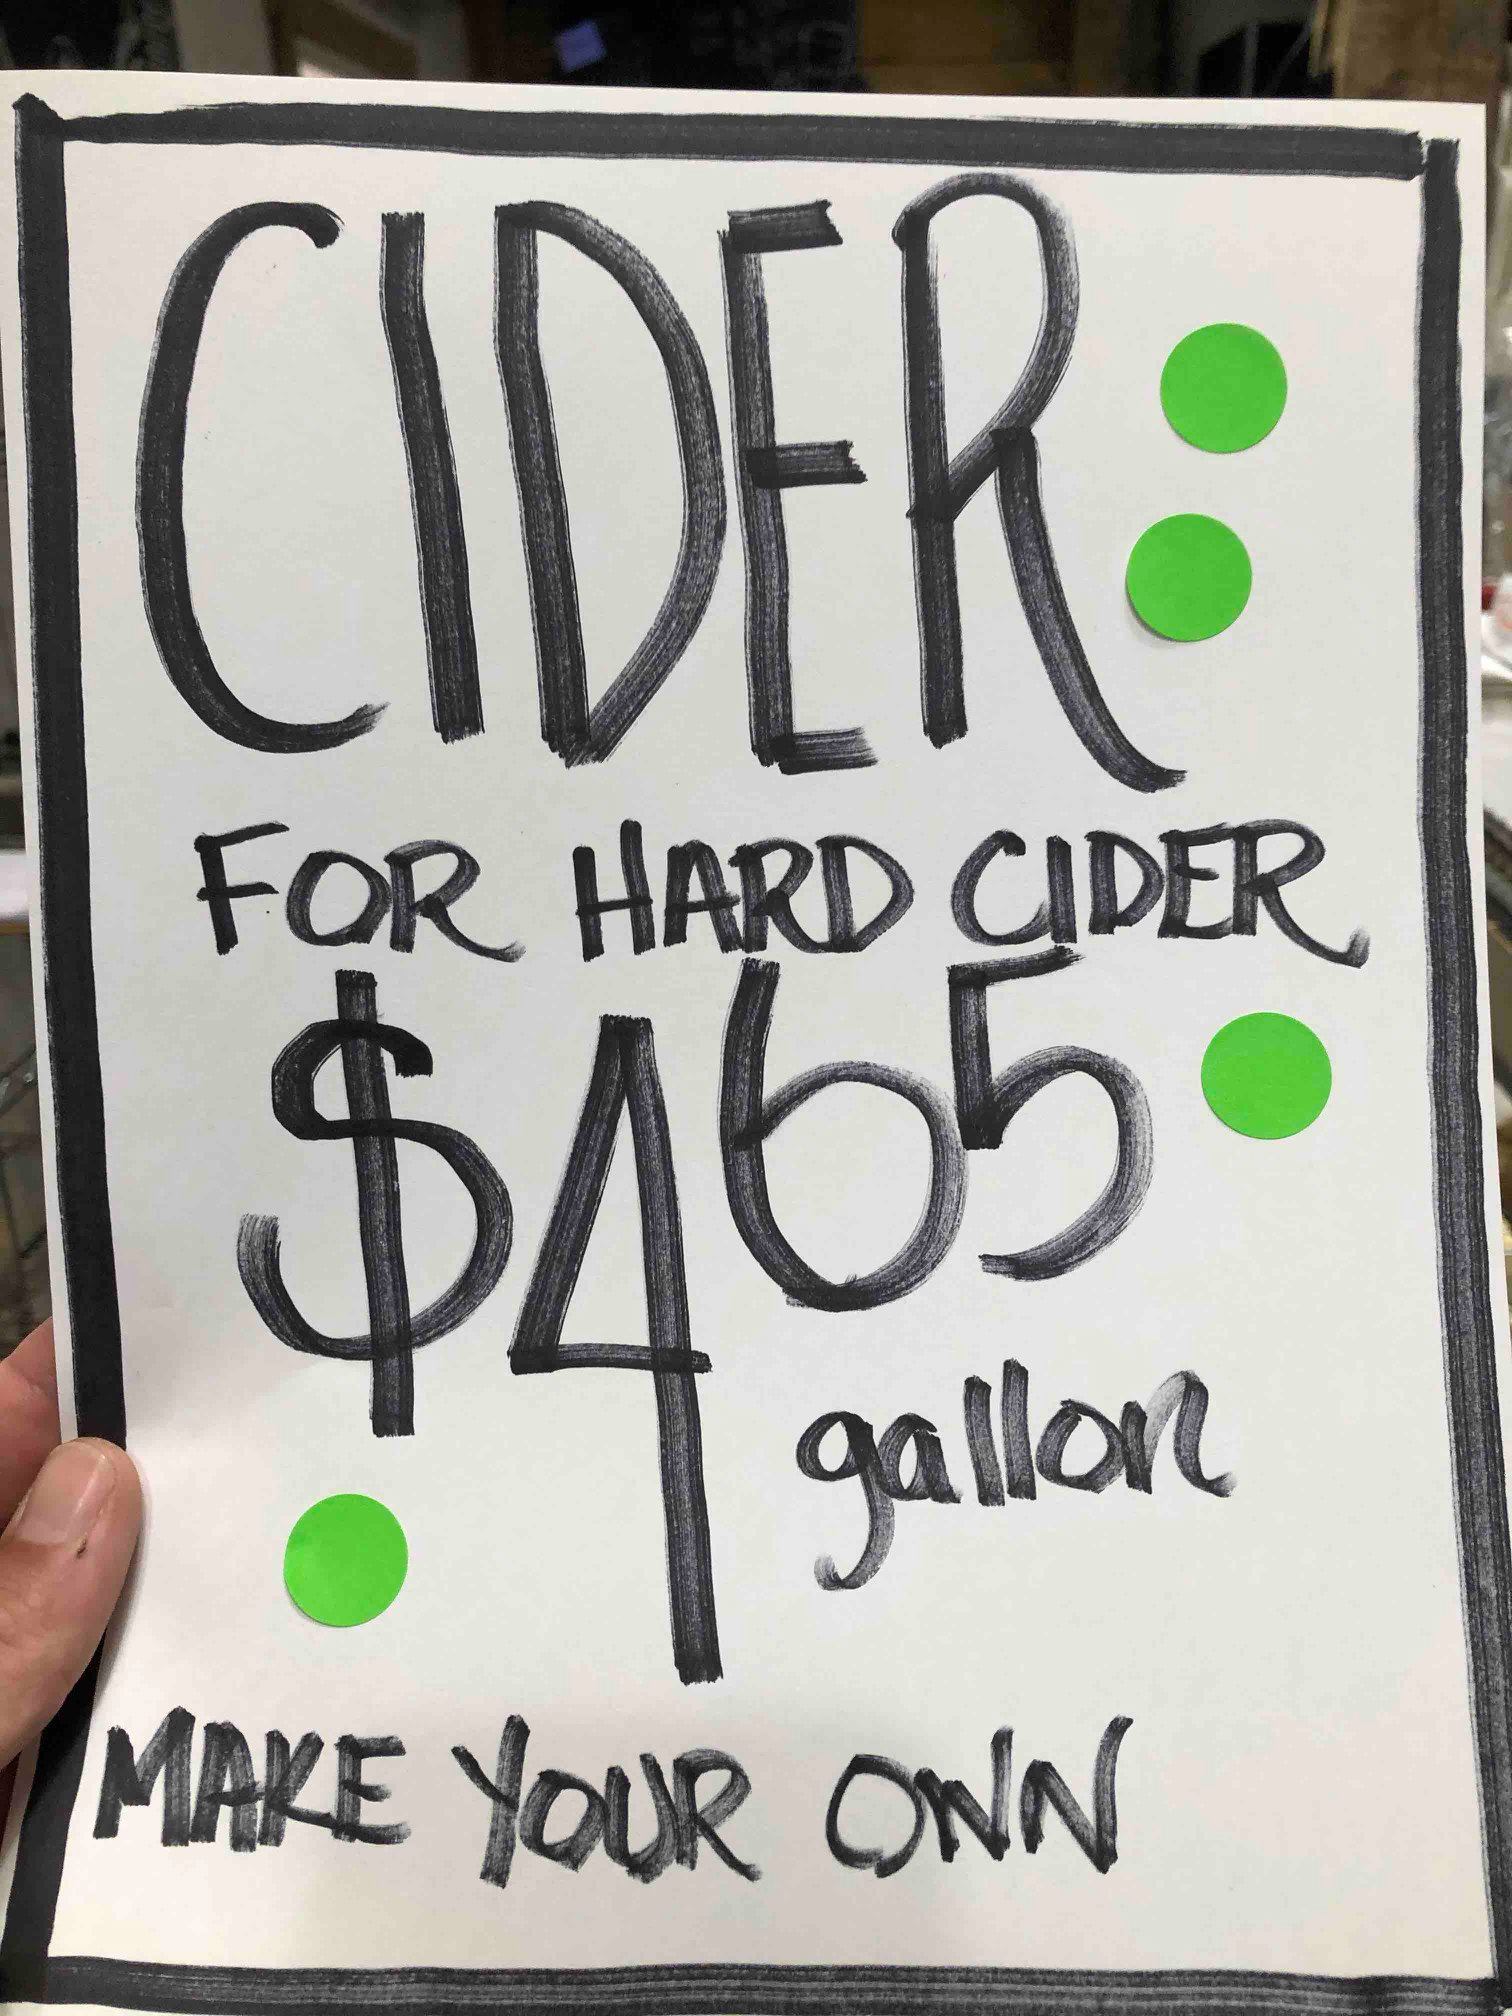 CIDER:
FOR HARD CIDER
$465
gallon
MAKE YOUR OWN